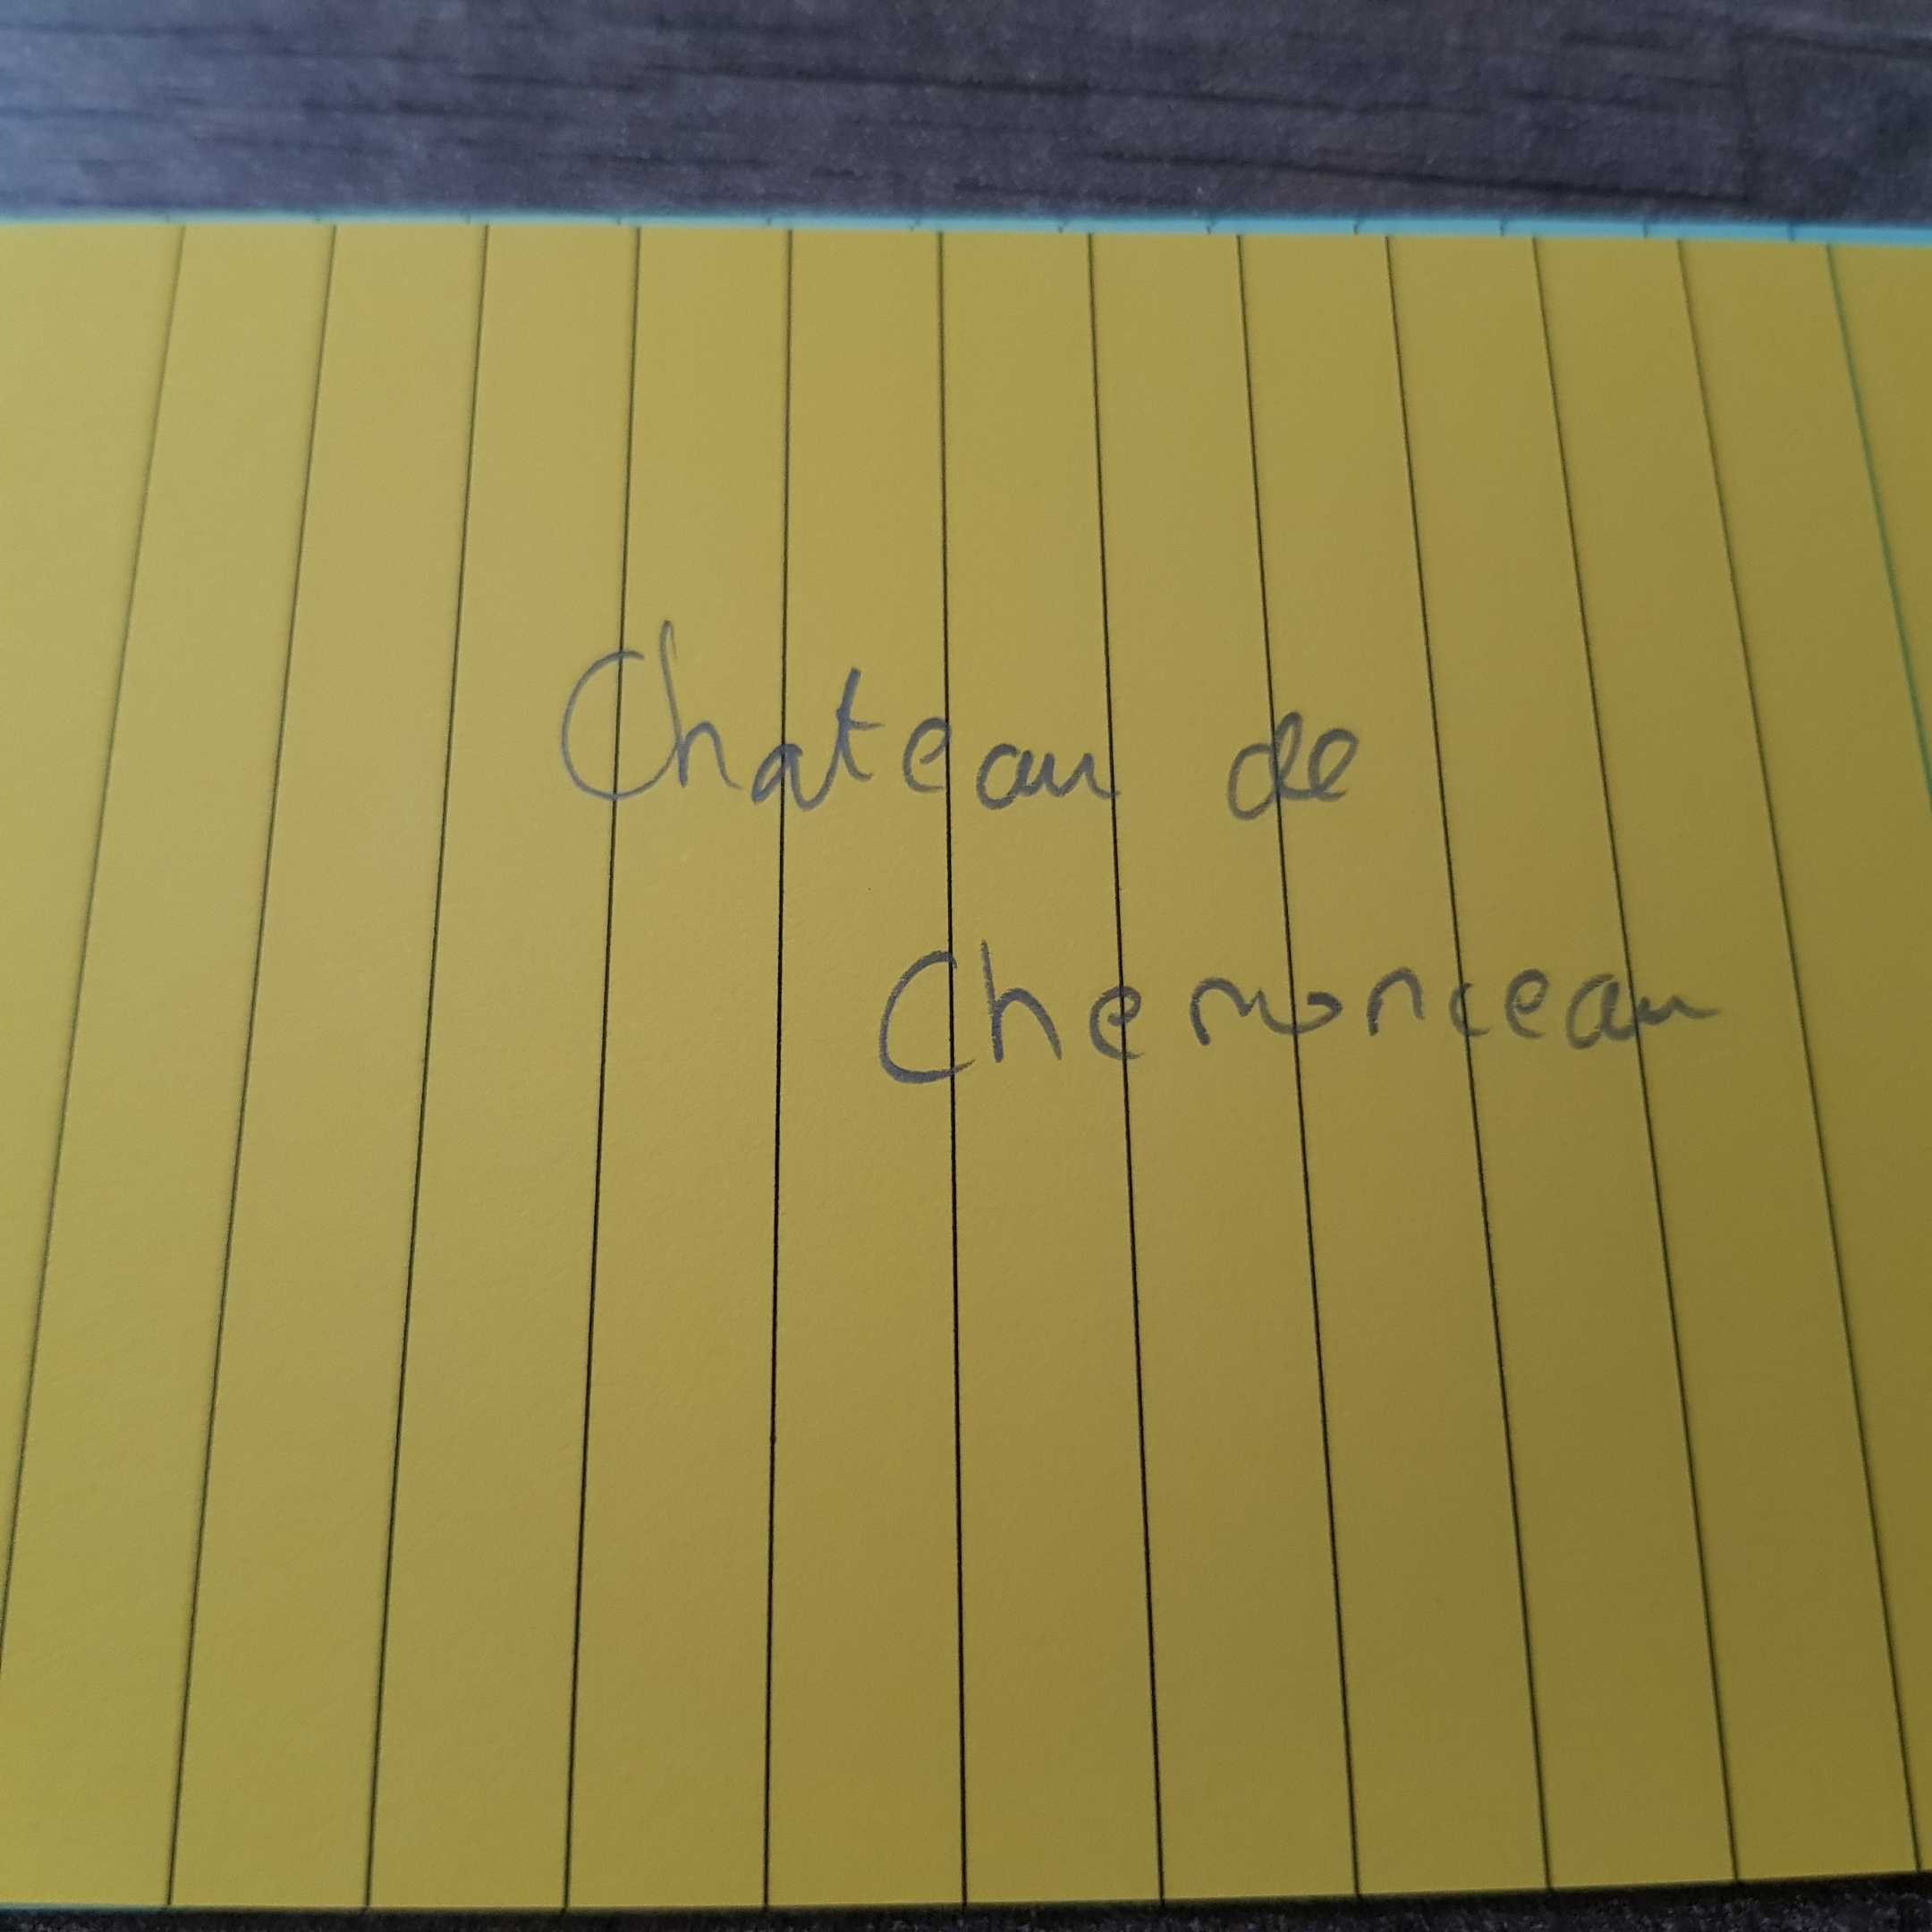 Chateau de
Chemonceau